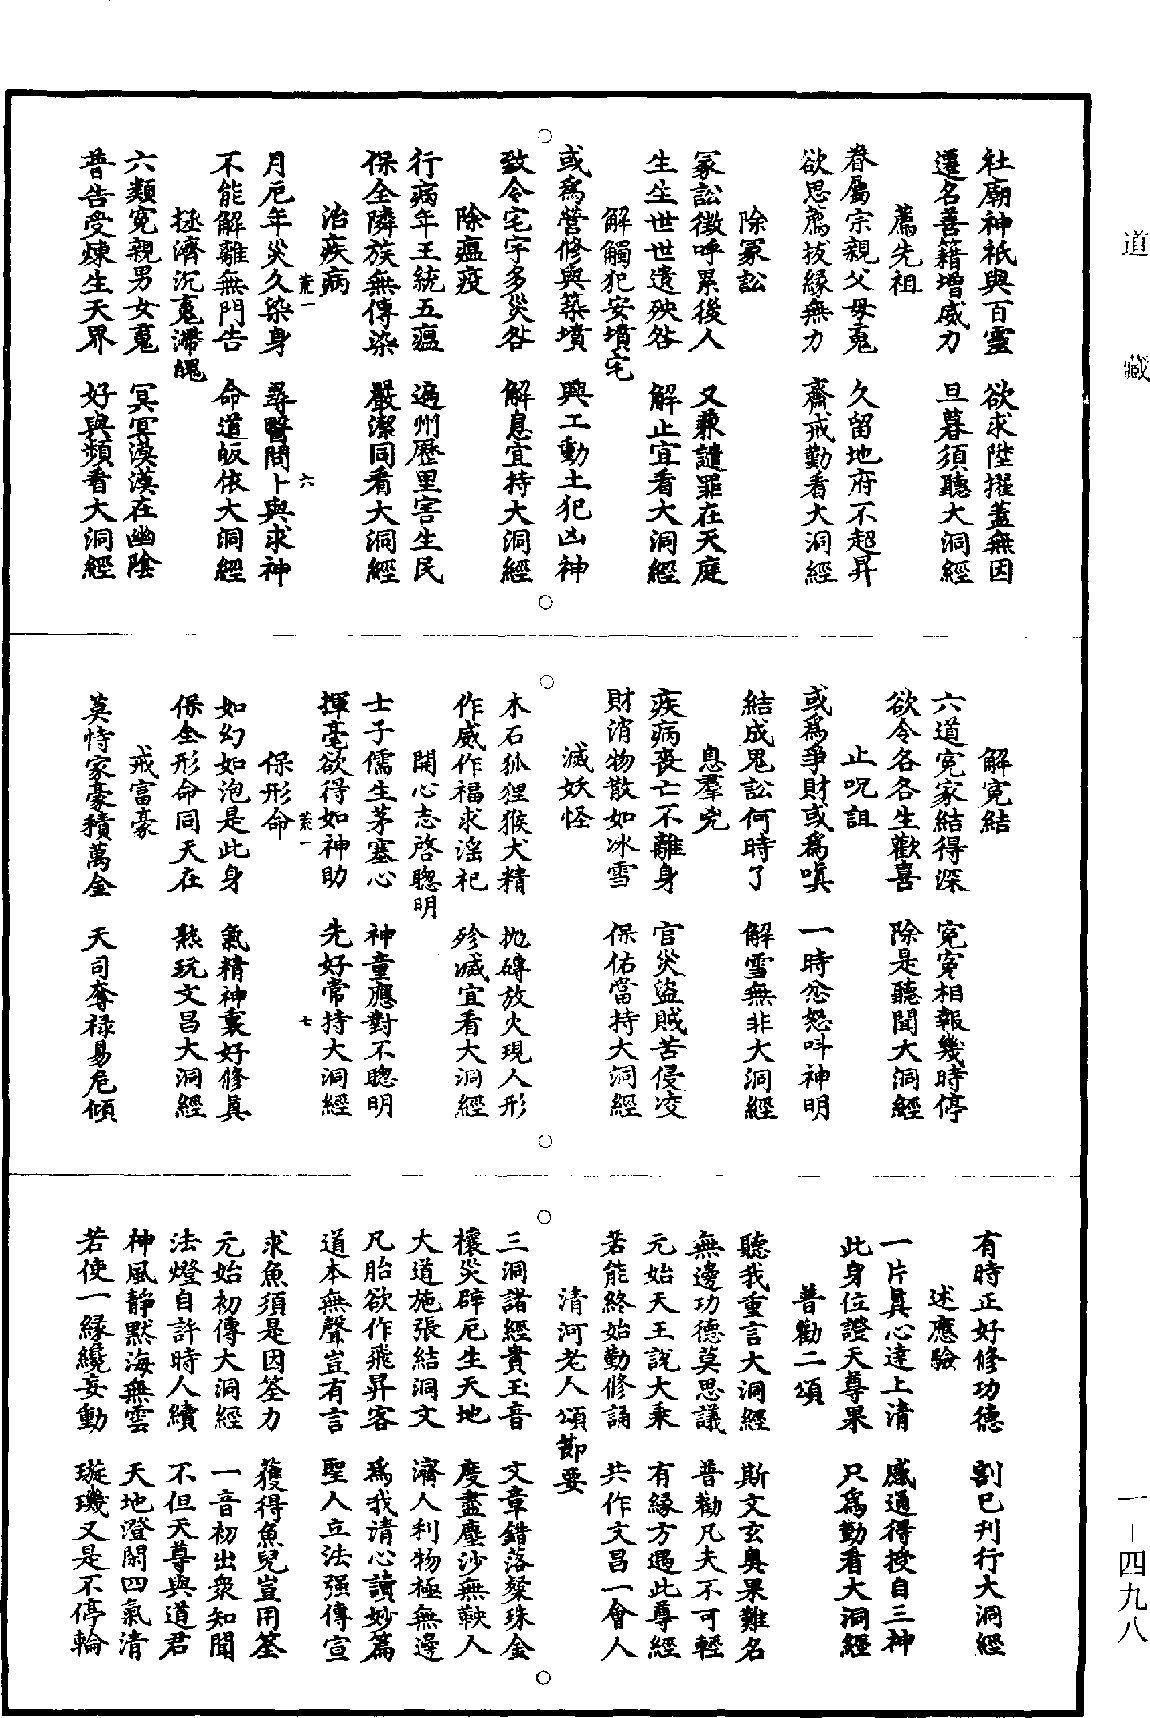 道　藏
社廟神祇與百靈　欲求陞擢蓋無因
遷名善籍增威力　旦暮須聽大洞經
薦先祖
眷屬宗親父母䰟　久留地府不超昇
欲思薦拔緣無力　齋戒勤看大洞經
除冢訟
冢訟徵呼累後人　又兼譴罪在天庭
生生世世遺殃咎　解止宜看大洞經
解觸犯安墳宅
或為營修與築墳　興工動土犯凶神
致令宅宇多災咎　解息宜持大洞經
除瘟疫
行病年王統五瘟　遍州歷里害生民
保全隣族無傳染　嚴潔同看大洞經
治疾病
月厄年災久染身　尋醫問卜與求神
不能解離無門告　命道皈依大洞經
拯濟沉䰟滯魄
六類寃親男女䰟　冥冥漠漠在幽陰
普告受煉生天界　好與頻看大洞經
解寃結
六道寃家結得深　寃寃相報幾時停
欲令各各生歡喜　除是聽聞大洞經
止呪詛
或為爭財或為嗔　一時忿怒呌神明
結成鬼訟何時了　解雪無非大洞經
息羣兇
疾病喪亡不離身　官災盜賊苦侵凌
財消物散如冰雪　保佑當持大洞經
滅妖怪
木石狐狸猴犬精　拋磚放火現人形
作威作福求滛祀　殄滅宜看大洞經
開心志啓聰明
士子儒生茅塞心　神童應對不聰明
揮毫欲得如神助　先好常持大洞經
保形命
如幻如泡是此身　氣精神裏好修真
保全形命同天在　熟玩文昌大洞經
戒富豪
莫恃家豪積萬金　天司奪祿易危傾
有時正好修功德　割已刋行大洞經
述應驗
一片眞心達上清　感通得授自三神
此身位證天尊果　只為勤看大洞經
普勸二頌
聽我重言大洞經　斯文玄奥果難名
無邊功德莫思議　普勸凡夫不可輕
元始天王說大乘　有緣方遇此尊經
若能終始勤修誦　共作文昌一會人
清河老人頌節要
三洞諸經貴玉音　文章錯落燦珠金
禳災辟厄生天地　度盡塵沙無鞅人
大道施張結洞文　濟人利物極無邊
凡胎欲作飛昇客　為我清心讀妙篇
道本無聲豈有言　聖人立法强傳宣
求魚須是因筌力　獲得魚兒豈用筌
元始初傳大洞經　一音初出衆知聞
法燈自許時人續　不但天尊與道君
神風靜默海無雲　天地澄開四氣清
若使一緣纔妄動　璇璣又是不停輪
一－四九八